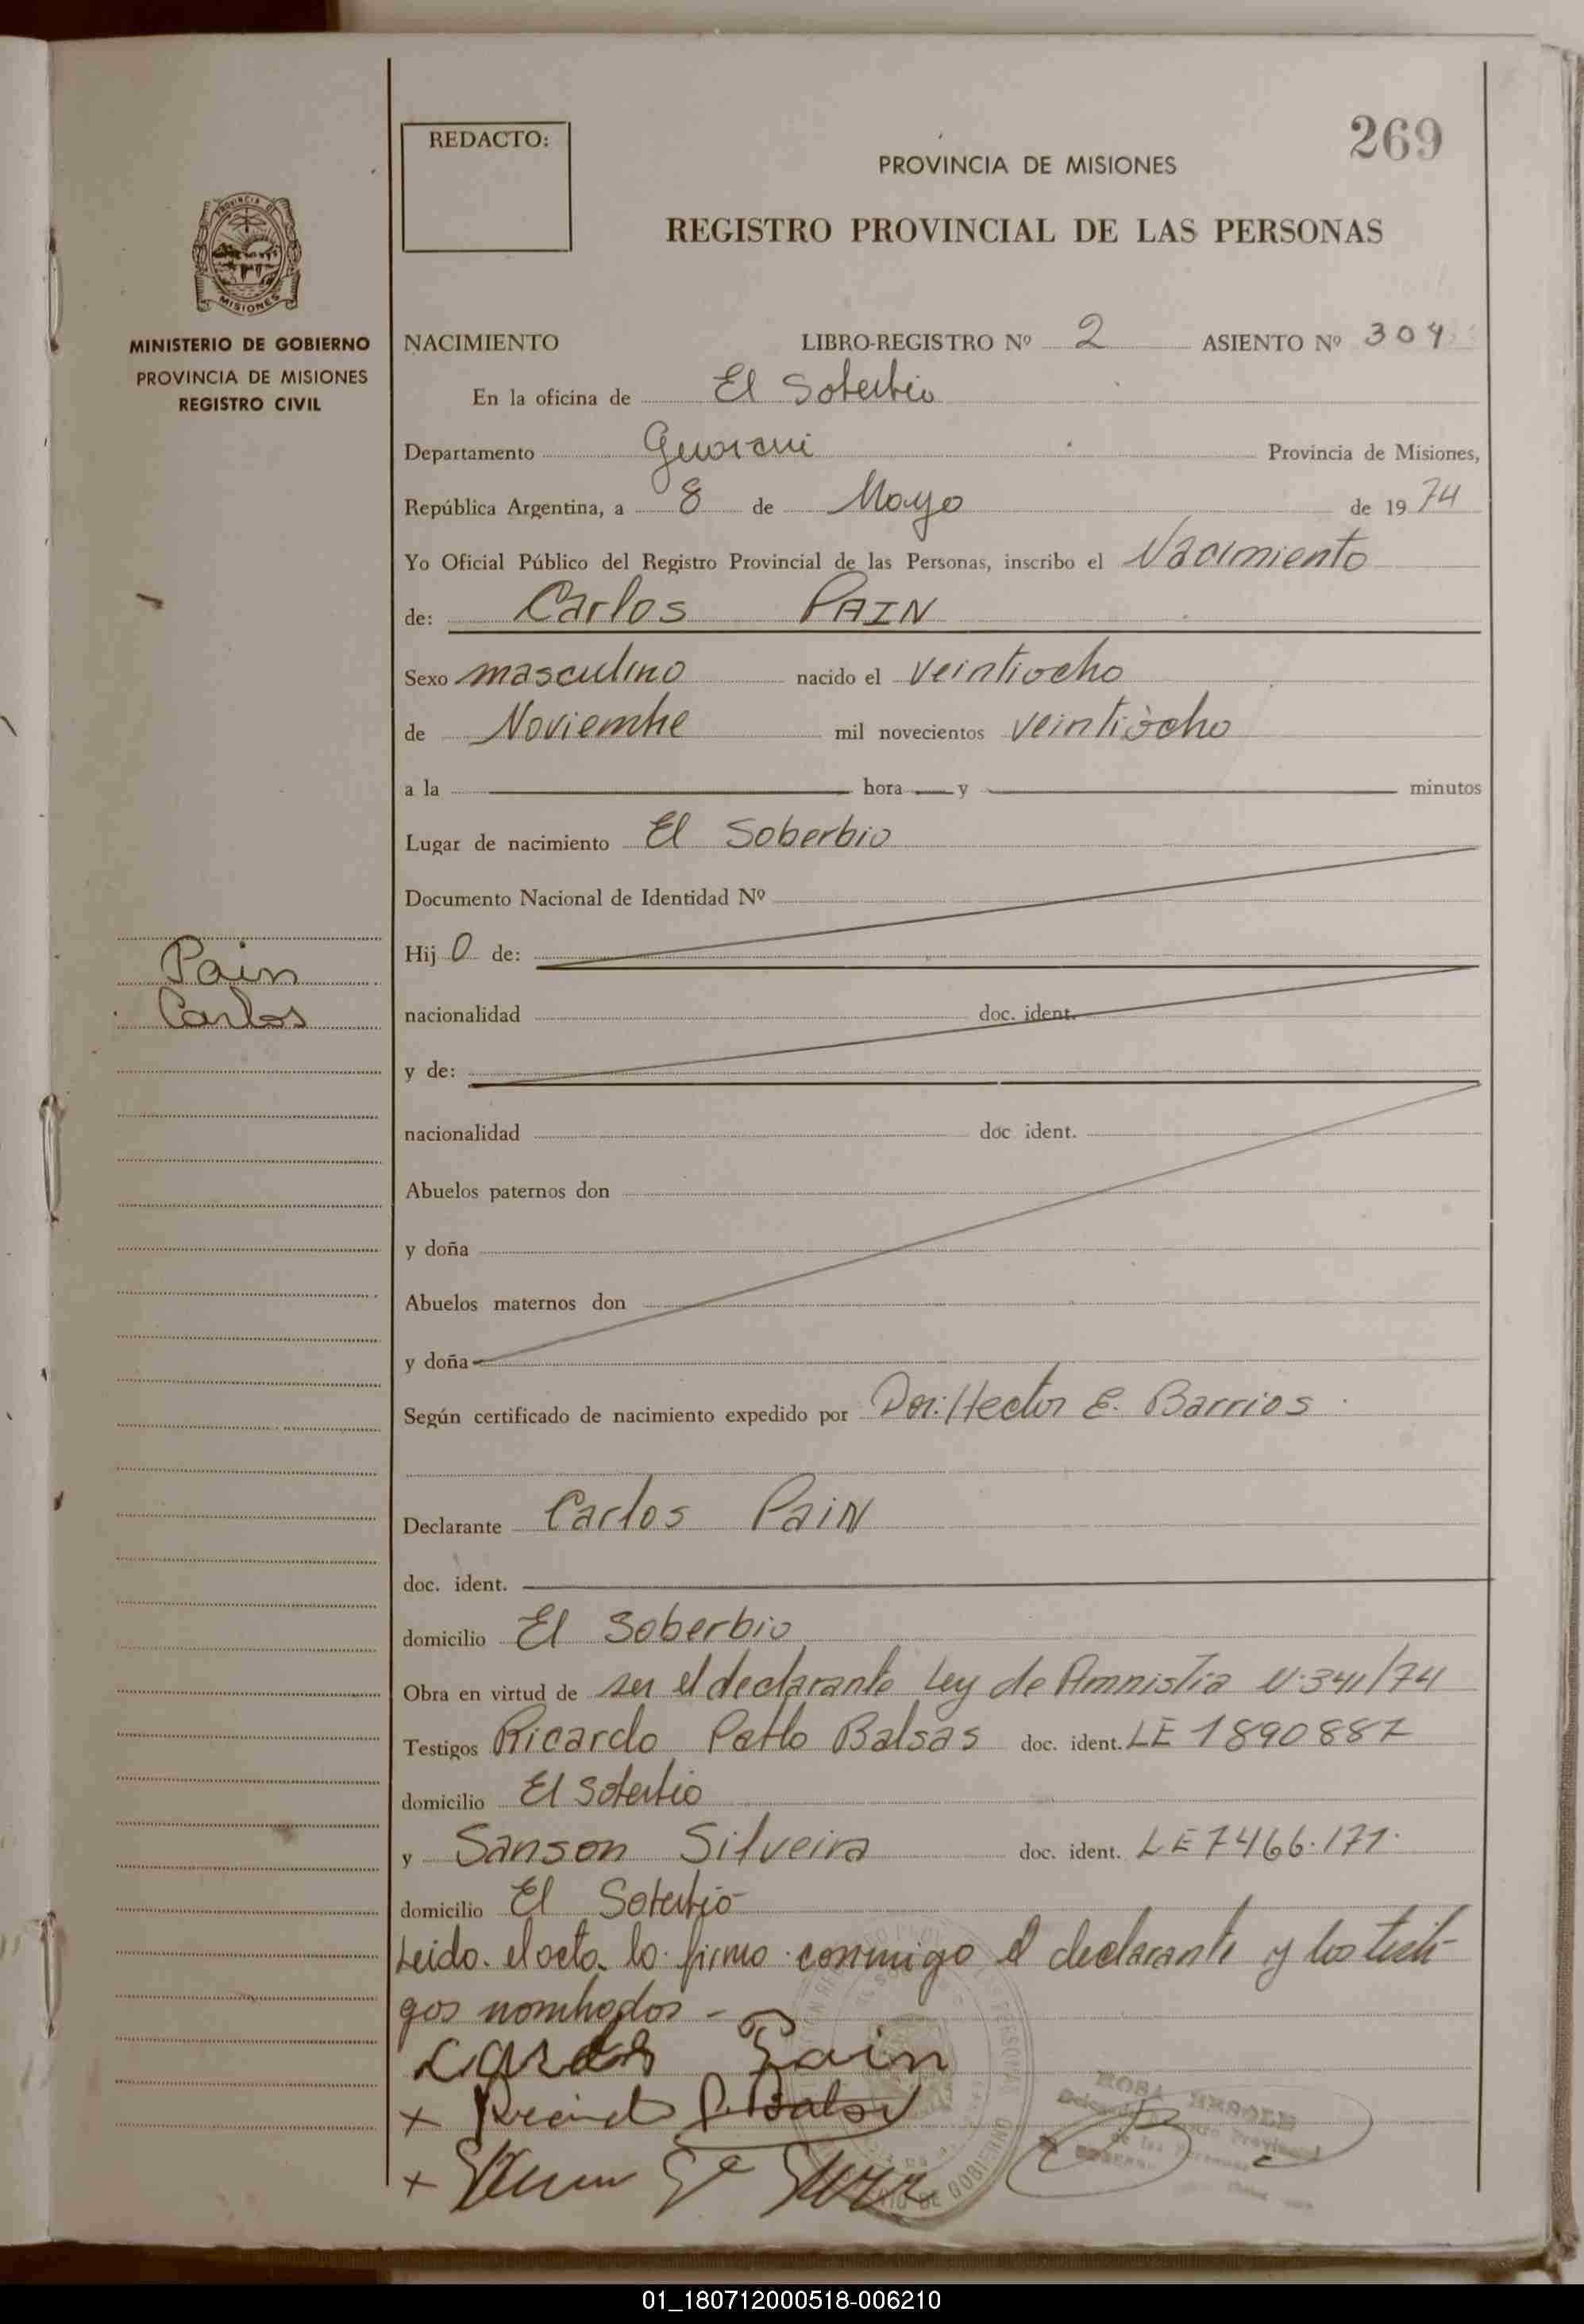 269
REDACTO:
PROVINCIA DE MISIONES
REGISTRO PROVINCIAL DE LAS PERSONAS
PROVINCIA DE
MISIONES
MINISTERIO DE GOBIERNO
PROVINCIA DE MISIONES
REGISTRO CIVIL
NACIMIENTO LIBRO-REGISTRO Nº 2 ASIENTO Nº 304
En la oficina de El Soberbio
Departamento Guarani Provincia de Misiones,
República Argentina, a 8 de Mayo de 1974
Yo Oficial Público del Registro Provincial de las Personas, inscribo el Nacimiento
de: Carlos PAIN
Sexo masculino nacido el veintiocho
de Noviembre mil novecientos veintiocho
a la hora y minutos
Lugar de nacimiento El Soberbio
Documento Nacional de Identidad Nº
Hijo de:
Pain
Carlos
nacionalidad doc. ident.
y de:
nacionalidad doc ident.
Abuelos paternos don
y doña
Abuelos maternos don
y doña
Según certificado de nacimiento expedido por Dor: Hector E. Barrios
Declarante Carlos PaiN
doc. ident.
domicilio El Soberbio
Obra en virtud de ser el declarante Ley de Amnistia N. 341/74
Testigos Ricardo Pablo Balsas doc. ident. LE 1890887
domicilio El Soberbio
y Sanson Silveira doc. ident. LE 7466.171.
domicilio El Soberbio
Leido el acta lo firma conmigo el declarante y los testi-
gos nombrados -
Carlos Pain
01_180712000518-006210